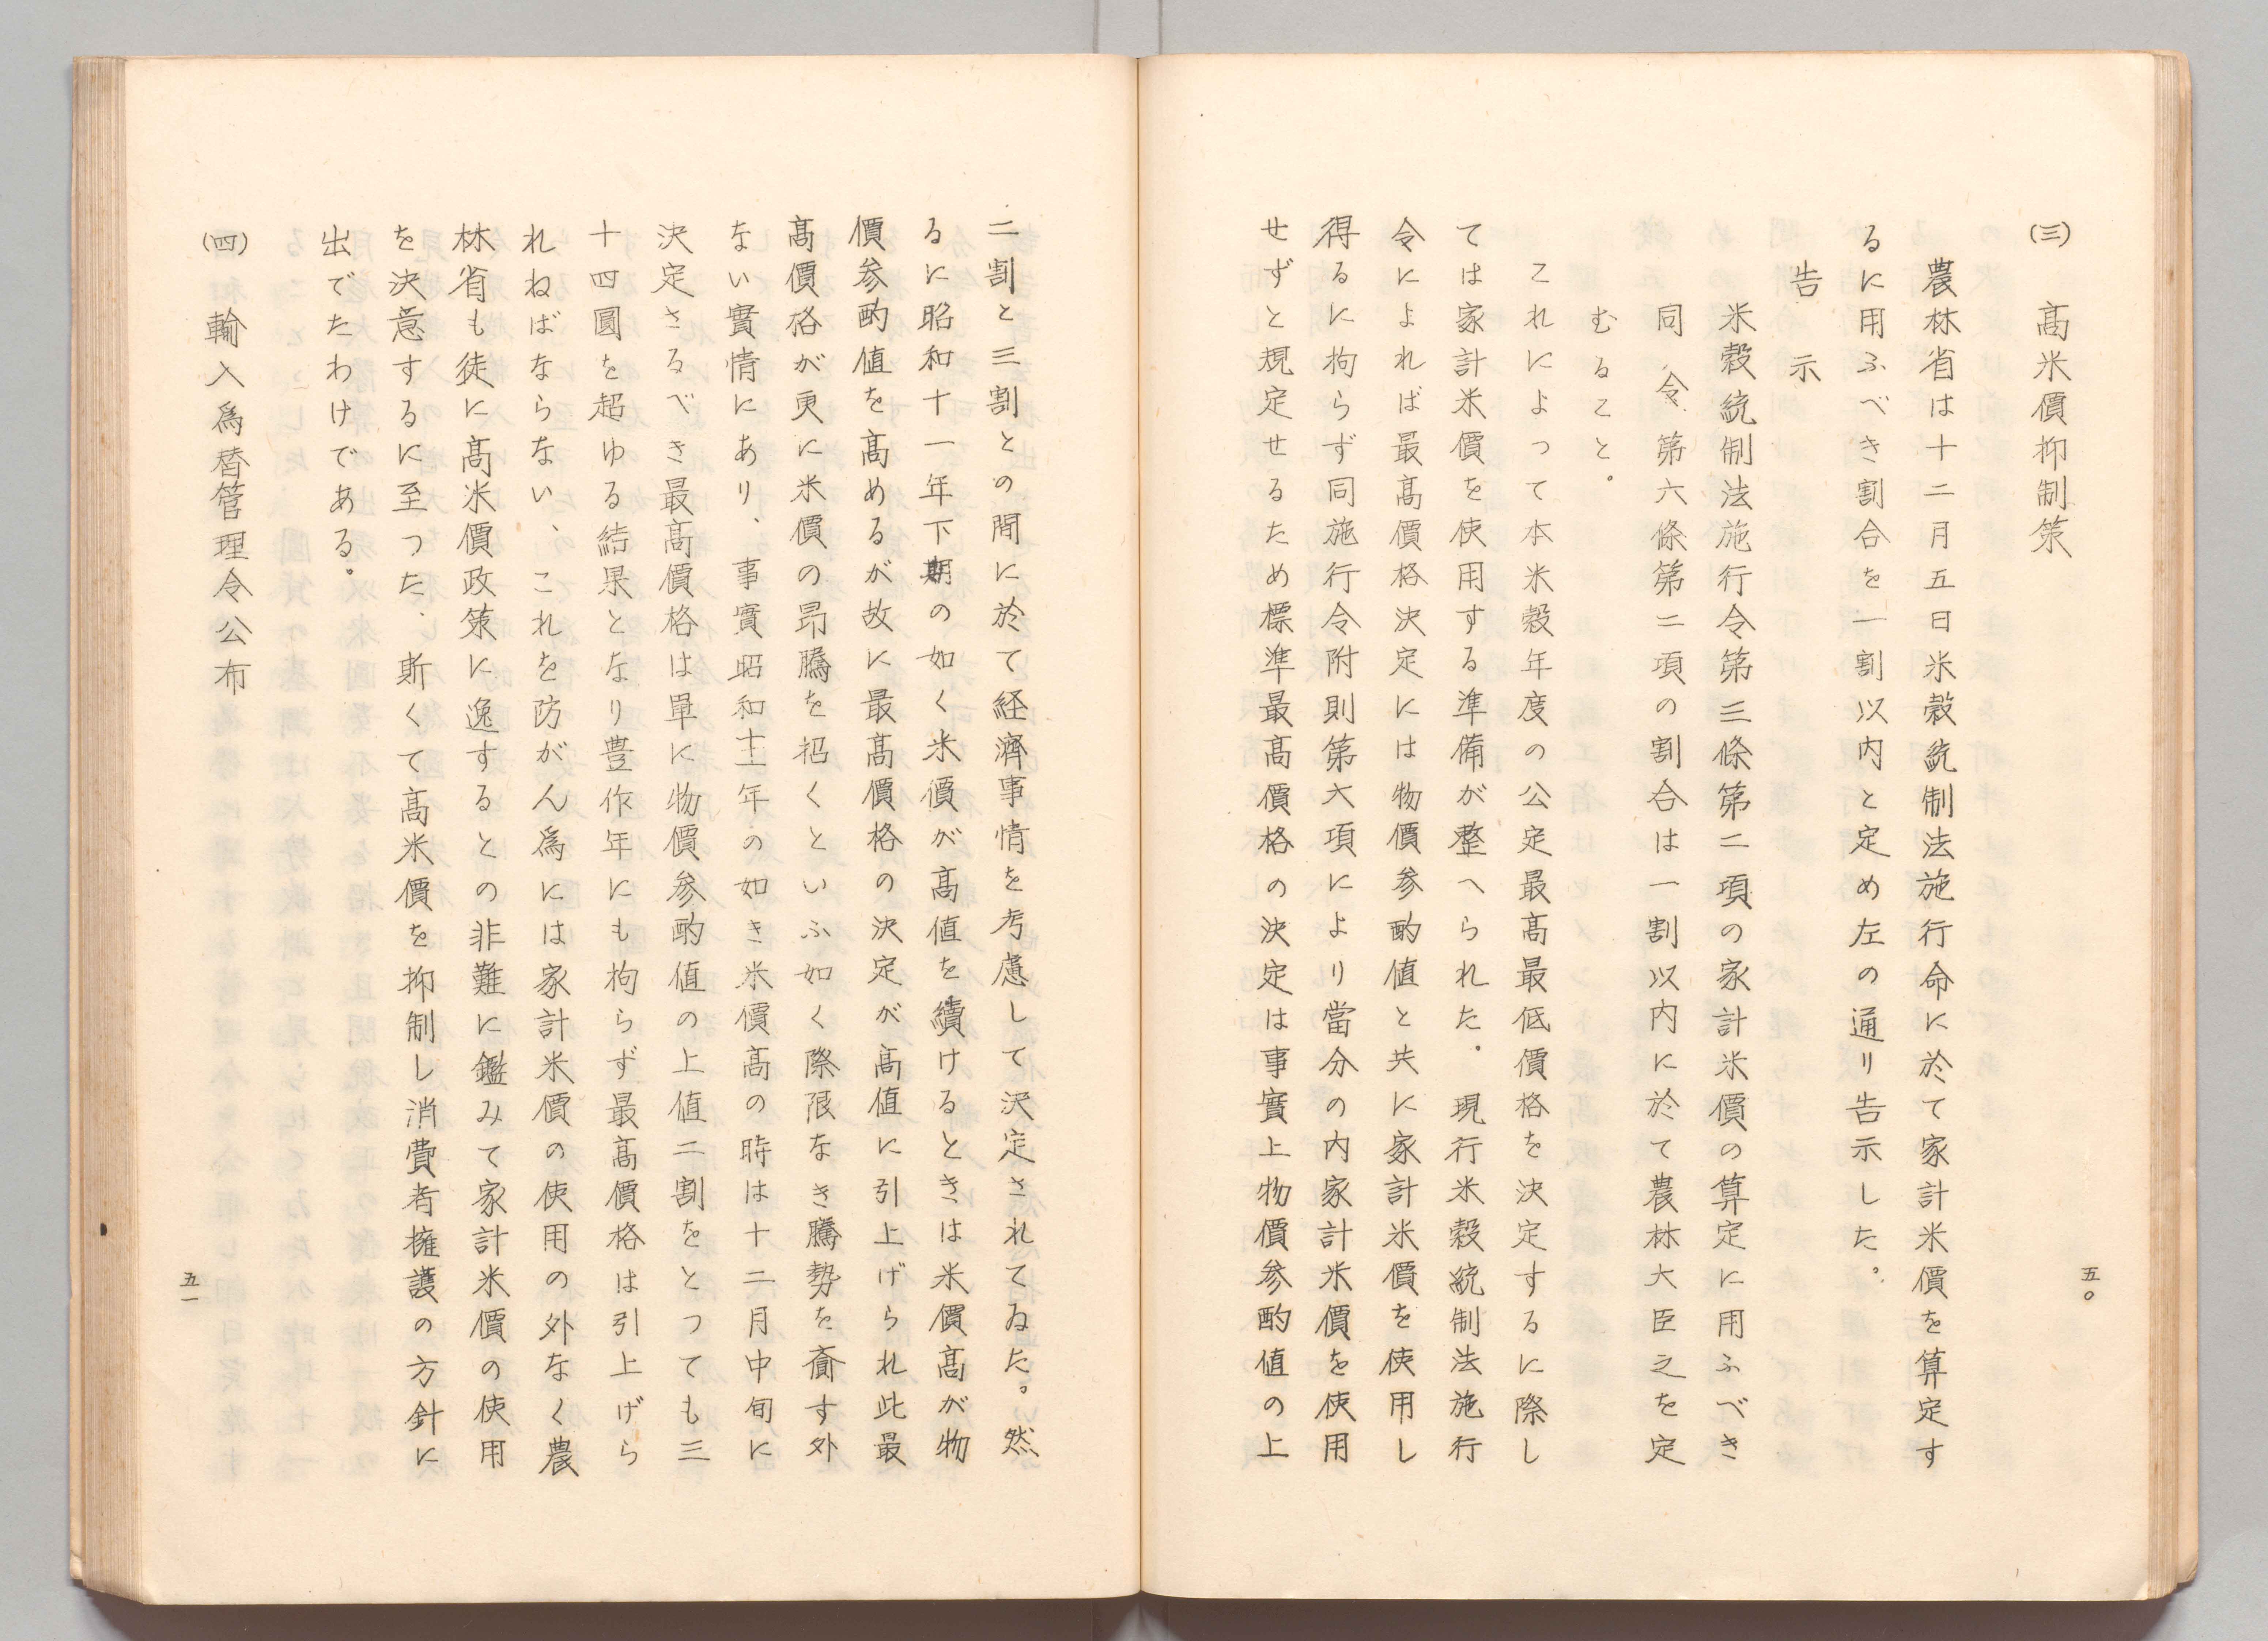 五〇
(三)　高米價抑制策
農林省は十二月五日米穀統制法施行命に於て家計米價を算定す
るに用ふべき割合を一割以内と定め左の通り告示した。
告　示
米穀統制法施行令第三條第二項の家計米價の算定に用ふべき
同　令　第六條第二項の割合は一割以内に於て農林大臣之を定
むること。
これによって本米穀年度の公定最高最低價格を決定するに際し
ては家計米價を使用する準備が整へられた。現行米穀統制法施行
令によれば最高價格決定には物價参酌値と共に家計米價を使用し
得るに拘らず同施行令附則第六項により當分の内家計米價を使用
せずと規定せるため標準最高價格の決定は事實上物價参酌値の上
二割と三割との間に於て経濟事情を考慮して決定されてゐた。然
るに昭和十一年下期の如く米價が高値を續けるときは米價高が物
價参酌値を高めるが故に最高價格の決定が高値に引上げられ此最
高價格が更に米價の昂騰を招くといふ如く際限なき騰勢を齎す外
ない實情にあり、事實昭和十一年の如き米價高の時は十二月中旬に
決定さるべき最高價格は單に物價参酌値の上値二割をとつても三
十四圓を超ゆる結果となり豊作年にも拘らず最高價格は引上げら
れねばならない、これを防がん爲には家計米價の使用の外なく農
林省も徒に高米價政策に逸するとの非難に鑑みて家計米價の使用
を決意するに至つた、斯くて高米價を抑制し消費者擁護の方針に
出でたわけである。
(四)　輸入爲替管理令公布
五一